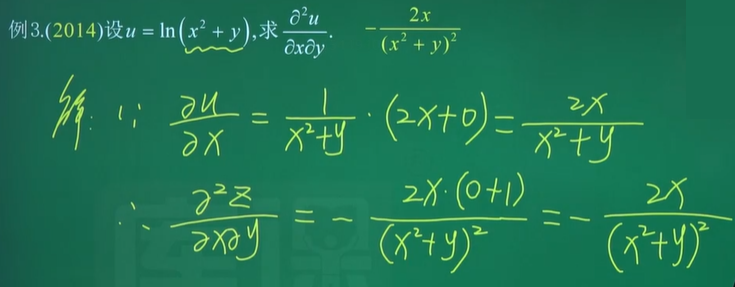 例3.(2014)设u = ln(x² + y),求 ∂²u/∂x∂y. -2x/(x² + y)²
解: ∵ ∂u/∂x = 1/(x²+y) · (2x+0) = 2x/(x²+y)
∴ ∂²z/∂x∂y = - 2x·(0+1)/(x²+y)² = - 2x/(x²+y)²